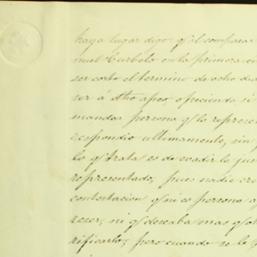 haya lugar digo: q.e el compara
muel Curbelo en la primera
ser corto el termino de ocho dia
ser á dho apeo, ofreciendo
mandar persona q.e lo represen
respondio ultimamente, sin
lo q.e trata es de evadir la jus
representado, pues nadie
contestacion q.e ni es persona
recer, ni q.e deseaba mas q.e
rificarlo; pero cuando se le